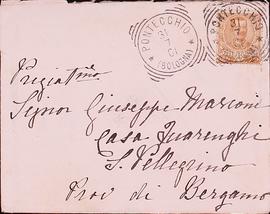 PONTECCHIO
31
7
01
(BOLOGNA)
PONTECCHIO
31
Pregiatmo
Signor Giuseppe Marconi
Casa Quarenghi
S. Pellegrino
Prov di Bergamo